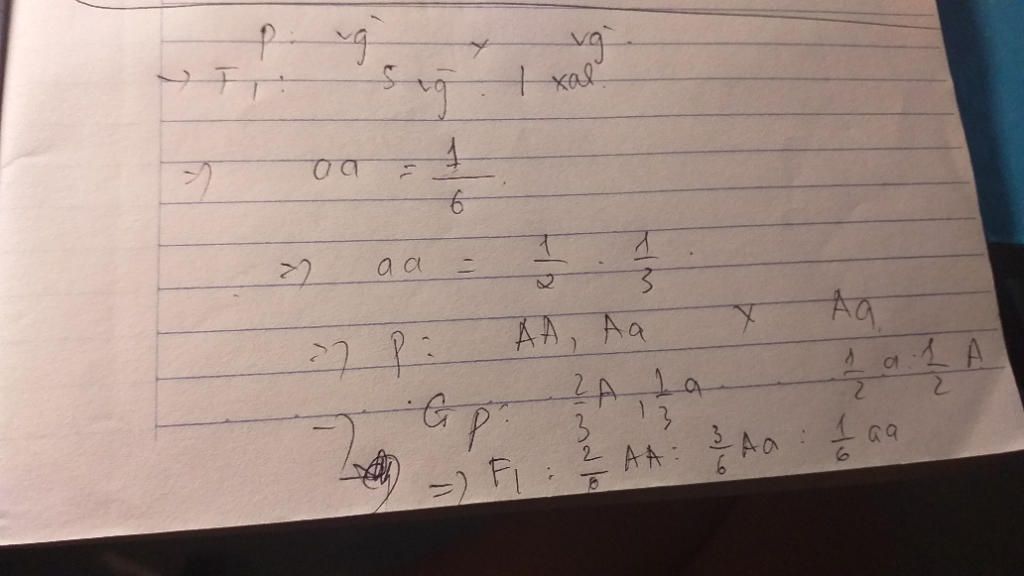 P: vg̃ x vg̃.
→ F1: 5 vg̃. 1 xal.
=> aa = 1/6.
=> aa = 1/2 . 1/3 .
=> P: AA, Aa x Aa
Gp: 2/3 A, 1/3 a 1/2 a : 1/2 A
=> F1: 2/6 AA : 3/6 Aa : 1/6 aa